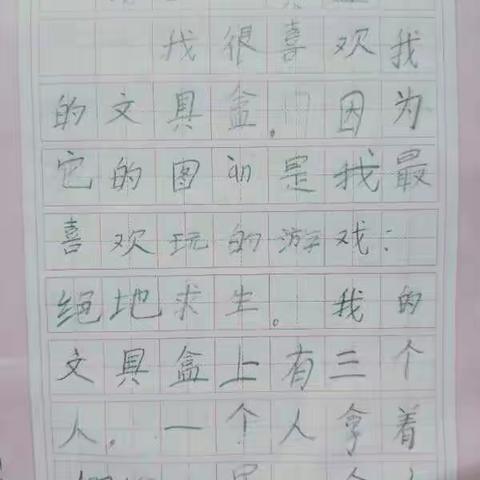 我很喜欢我
的文具盒。因为
它的图un是我最
喜欢玩的游戏：
绝地求生。我的
文具盒上有三个
人。一个人拿着